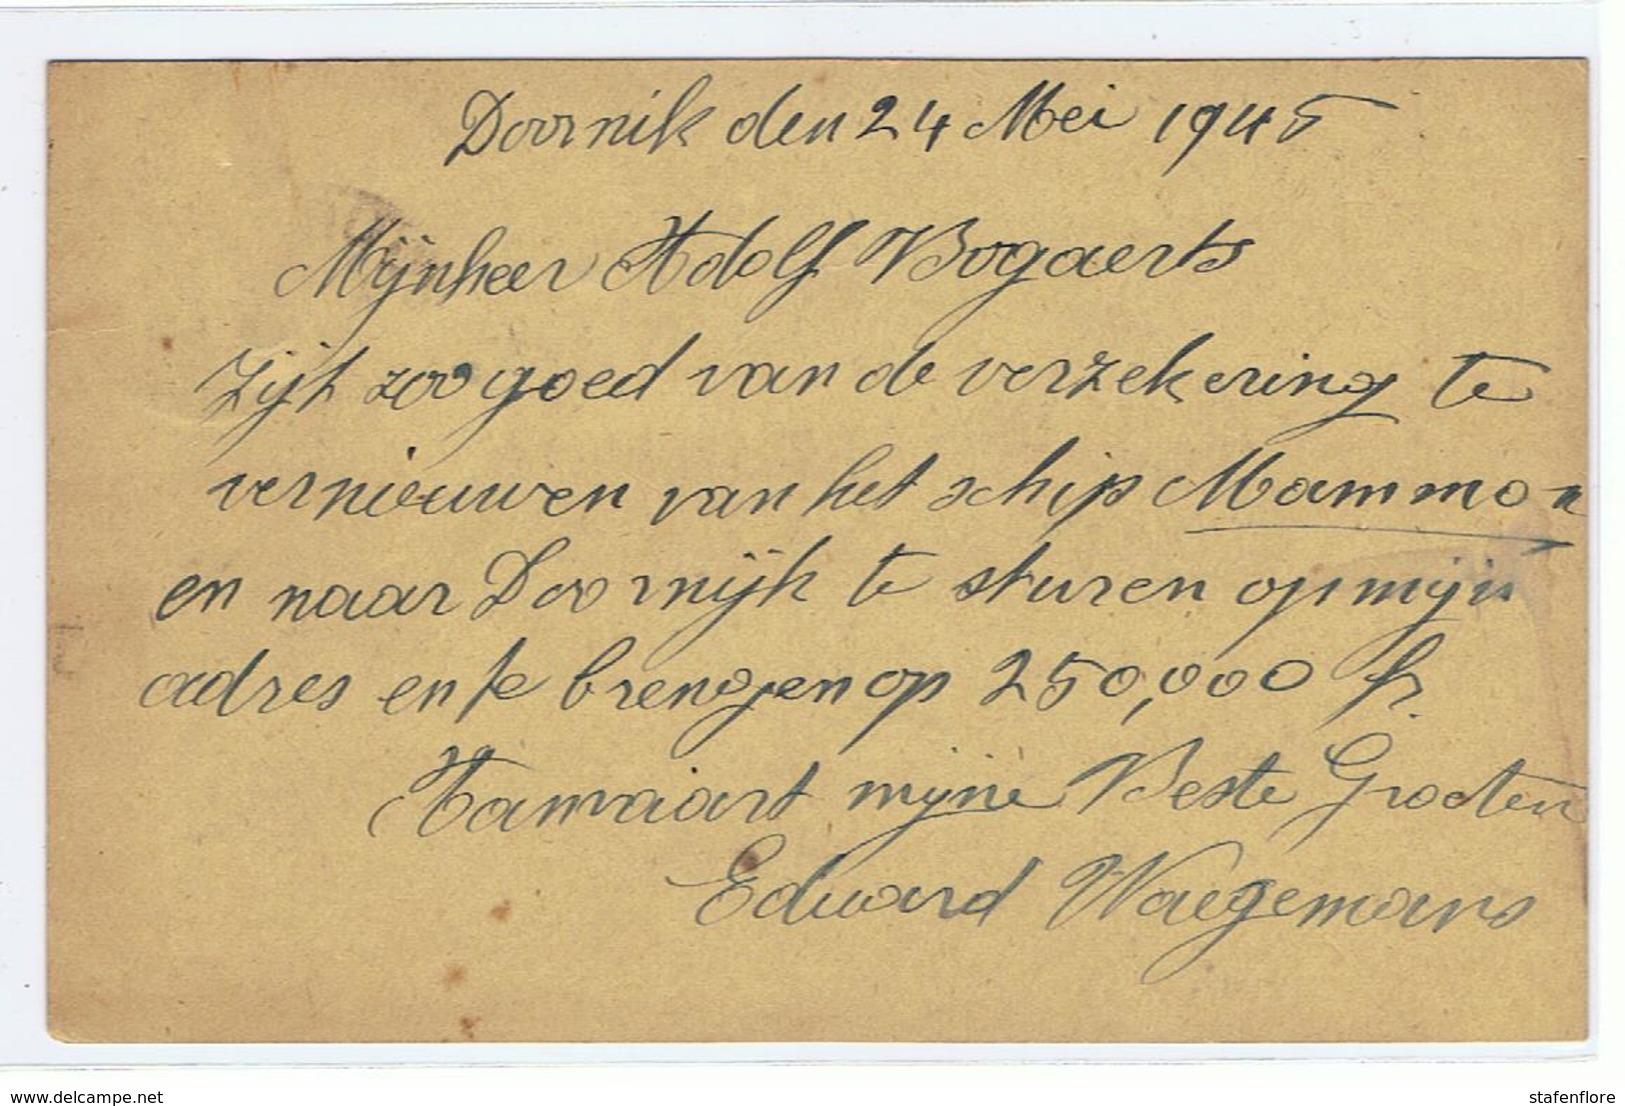 Doornik den 24 Mei 1945
Mijnheer Adolf Bogaerts
Zijt zoo goed van de verzekering te
vernieuwen van het schip Mammon
en naar Doornijk te sturen op mijn
adres en te brengen op 250,000 fr.
Aanvaart mijne Beste Groeten
Eduward Waegemans
www.delcampe.net
stafenflore